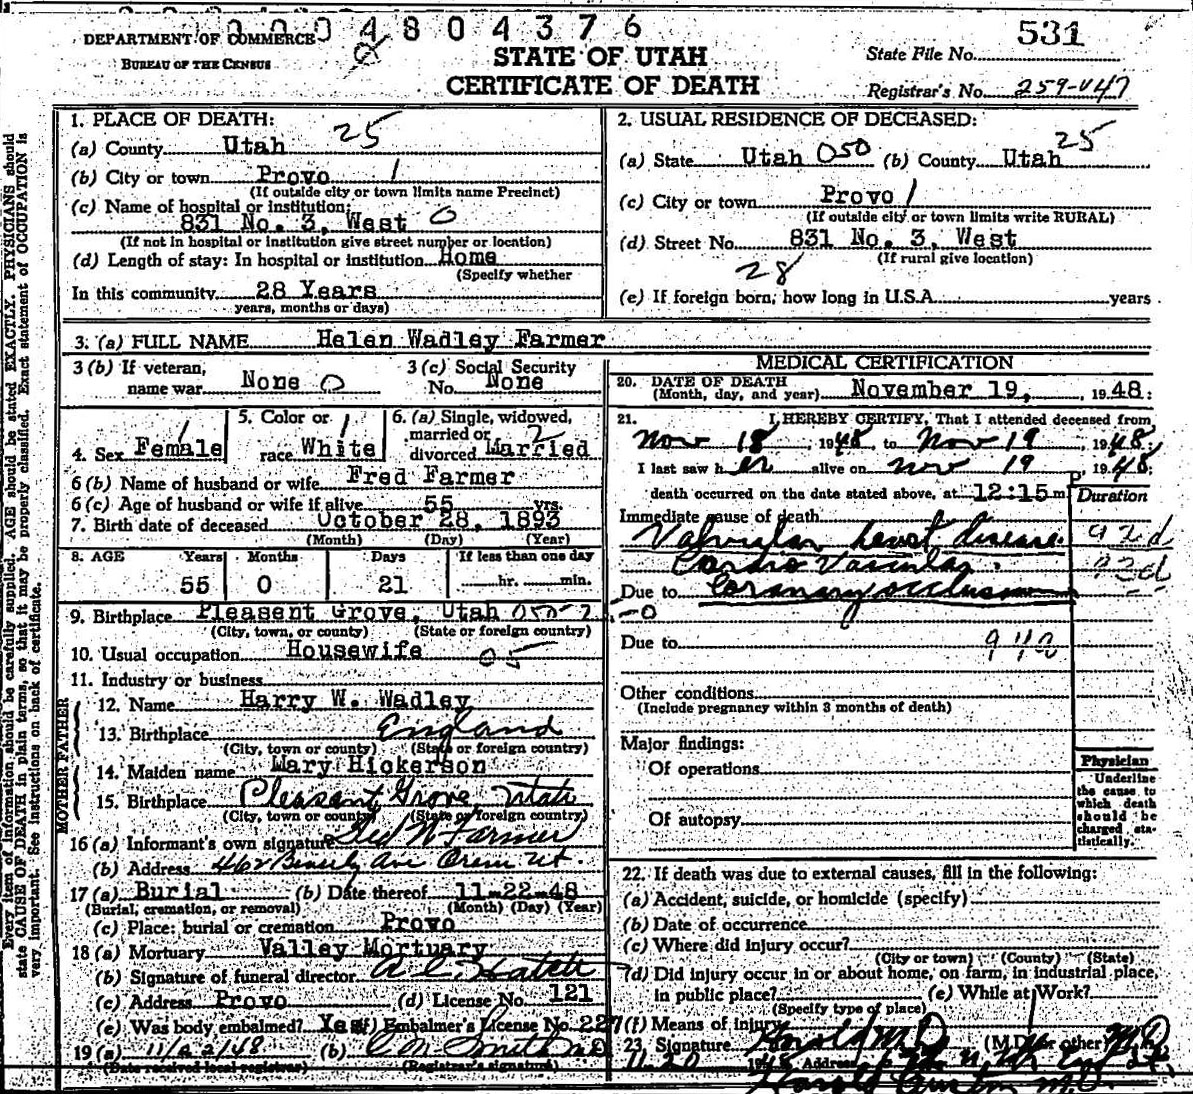 0004804376
DEPARTMENT OF COMMERCE
BUREAU OF THE CENSUS
STATE OF UTAH
CERTIFICATE OF DEATH
State File No. 531
Registrar's No. 259-V47
Every item of information should be carefully supplied. AGE should be stated EXACTLY. PHYSICIANS should
state CAUSE OF DEATH in plain terms, so that it may be properly classified. Exact statement of OCCUPATION is
very important. See instructions on back of certificate.
1. PLACE OF DEATH: 25
(a) County Utah
(b) City or town Provo 1
(If outside city or town limits name Precinct)
(c) Name of hospital or institution:
831 No. 3, West 0
(If not in hospital or institution give street number or location)
(d) Length of stay: In hospital or institution Home
(Specify whether
In this community 28 Years
years, months or days)
2. USUAL RESIDENCE OF DECEASED:
(a) State Utah 050 (b) County Utah 25
(c) City or town Provo 1
(If outside city or town limits write RURAL)
(d) Street No. 831 No. 3, West
(If rural give location)
28
(e) If foreign born, how long in U.S.A. years
3. (a) FULL NAME Helen Wadley Farmer
3 (b) If veteran,
name war None 0
3 (c) Social Security
No. None
4. Sex Female 1
5. Color or
race White 1
6. (a) Single, widowed,
married or
divorced Married 2
6 (b) Name of husband or wife Fred Farmer
6 (c) Age of husband or wife if alive 55 yrs.
7. Birth date of deceased October 28, 1893
(Month) (Day) (Year)
8. AGE Years Months Days If less than one day
55 0 21 hr. min.
9. Birthplace Pleasent Grove, Utah 050-2
(City, town, or county) (State or foreign country)
10. Usual occupation Housewife 05
11. Industry or business
FATHER
12. Name Harry W. Wadley
13. Birthplace England
(City, town or county) (State or foreign country)
MOTHER
14. Maiden name Mary Hickerson
15. Birthplace Pleasant Grove, Utah
(City, town or county) (State or foreign country)
16 (a) Informant's own signature Farmer
(b) Address 462 Beverly Ave Orem Ut.
17 (a) Burial (b) Date thereof 11-22-48
(Burial, cremation, or removal) (Month) (Day) (Year)
(c) Place: burial or cremation Provo
18 (a) Mortuary Valley Mortuary
(b) Signature of funeral director
(c) Address Provo (d) License No. 121
(e) Was body embalmed? Yes (f) Embalmer's License No. 227
19 (a) 11/22/48 (b) Smith
(Date received local registrar) (Registrar's signature)
MEDICAL CERTIFICATION
20. DATE OF DEATH
(Month, day, and year) November 19, 1948:
21. I HEREBY CERTIFY, That I attended deceased from
Nov 18, 1948, to Nov 19 1948;
I last saw her alive on Nov 19, 1948;
death occurred on the date stated above, at 12:15 P m. Duration
Immediate cause of death
Valvular heart disease. 92d
Cardio Vascular. 93d
Due to Coronary occlusion
-0
Due to 94a
Other conditions
(Include pregnancy within 3 months of death)
Major findings:
Of operations
Of autopsy
Physician
Underline
the cause to
which death
should be
charged sta-
tistically.
22. If death was due to external causes, fill in the following:
(a) Accident, suicide, or homicide (specify)
(b) Date of occurrence
(c) Where did injury occur?
(City or town) (County) (State)
(d) Did injury occur in or about home, on farm, in industrial place,
in public place? (e) While at Work?
(Specify type of place)
(f) Means of injury
23. Signature (M.D. or other) M.D.
11-20 1948 Address
Harold Austin M.D.